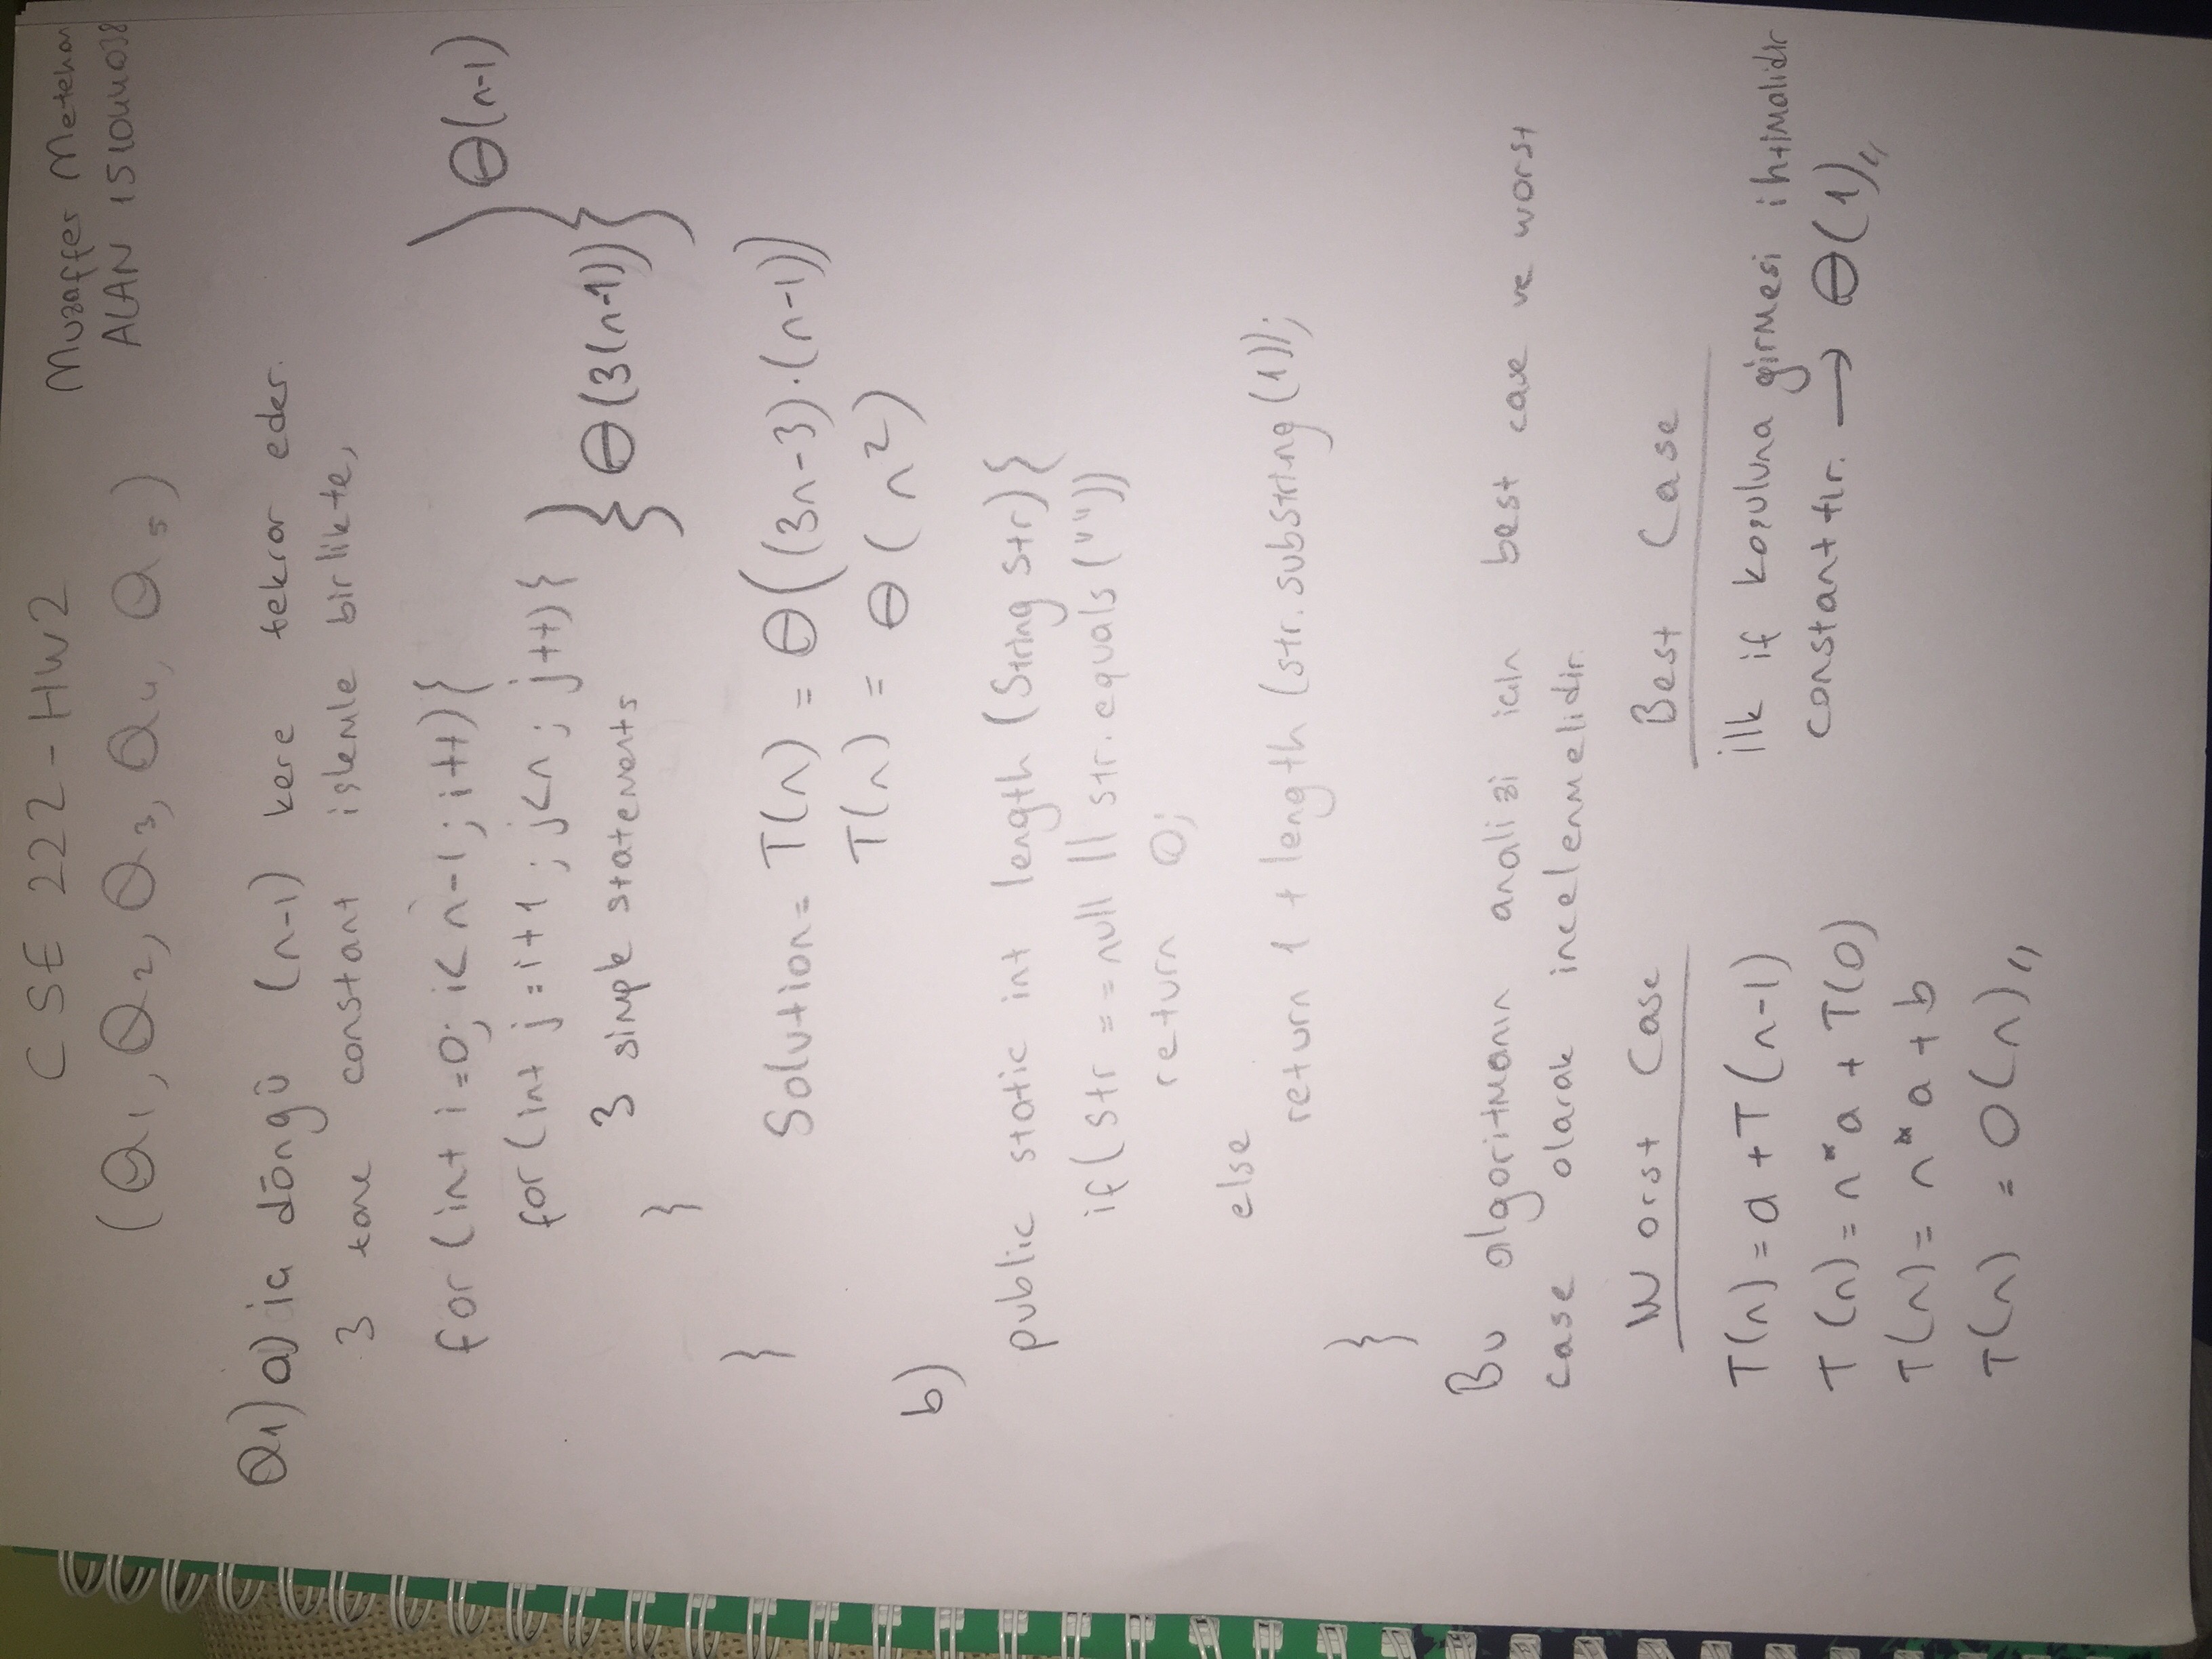 CSE 222 - HW2
Muzaffer Metehan
ALAN 151044038
(Q1, Q2, Q3, Q4, Q5)
Q1) a) iç döngü (n-1) kere tekrar eder.
3 tane constant işlemle birlikte,
for (int i=0; i< n-1; i++){
for (int j=i+1; j<n; j++){
3 simple statements
}
}
} Θ(3(n-1))
} Θ(n-1)
Solution= T(n) = Θ((3n-3)·(n-1))
T(n) = Θ(n²)
b)
public static int length (String str){
if( str == null || str.equals(""))
return 0;
else
return 1 + length (str.substring(1));
}
Bu algoritmanın analizi için best case ve worst
case olarak incelenmelidir.
Worst Case
T(n) = a + T(n-1)
T(n) = n*a + T(0)
T(n) = n*a + b
T(n) = O(n),,
Best Case
ilk if koşuluna girmesi ihtimalidir
constanttır. → Θ(1),,